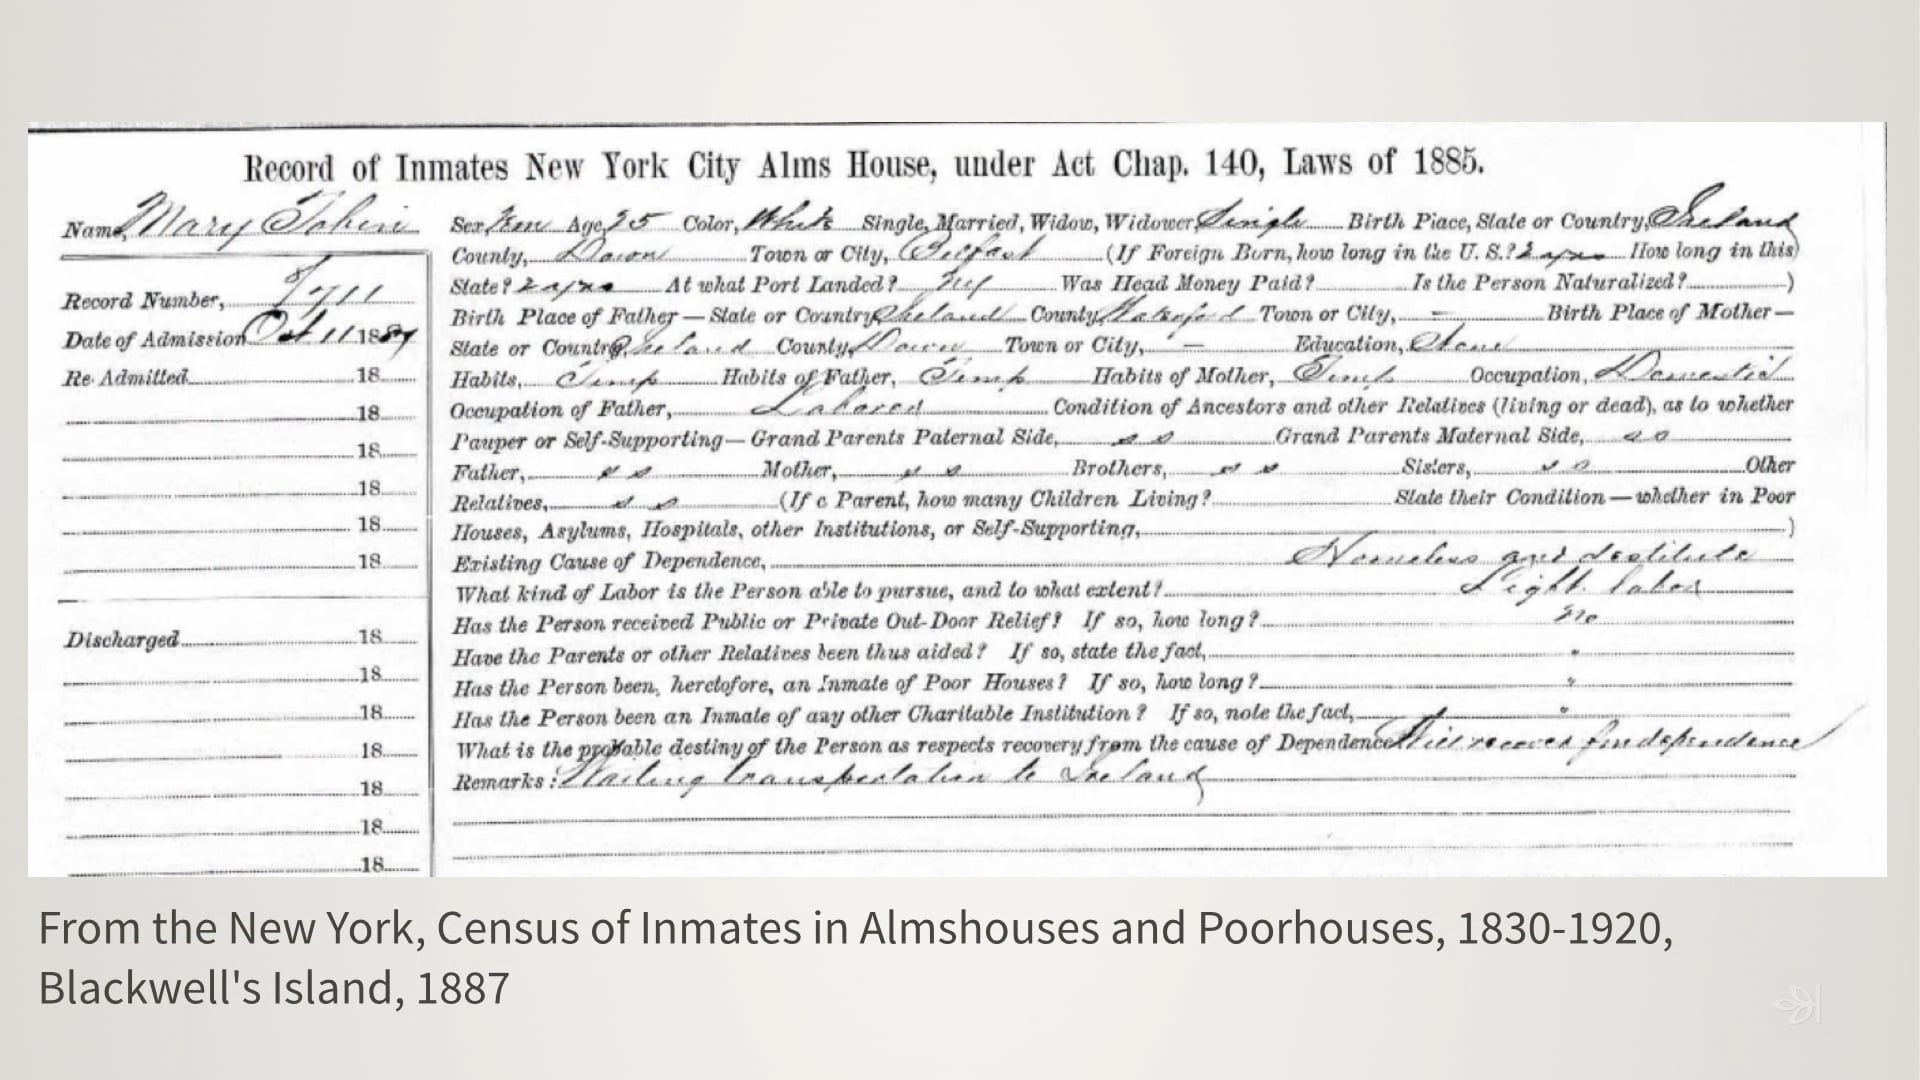 Record of Inmates New York City Alms House, under Act Chap. 140, Laws of 1885.
Name, Mary Tobin
Record Number,
Date of Admission Oct 11 188
Re-Admitted 18
18
18
18
18
18
Discharged 18
18
18
18
18
18
18
Sex, Fem Age, 25 Color, White Single, Married, Widow, Widower, Single Birth Place, State or Country, Ireland
County, Down Town or City, Belfast (If Foreign Born, how long in the U. S.? 2 yrs How long in this
State? 2 yrs At what Port Landed? Was Head Money Paid? Is the Person Naturalized? )
Birth Place of Father—State or Country, Ireland County, Waterford Town or City, — Birth Place of Mother—
State or Country, Ireland County, Down Town or City, — Education,
Habits, Temp Habits of Father, Temp Habits of Mother, Temp Occupation, Domestic
Occupation of Father, Laborer Condition of Ancestors and other Relatives (living or dead), as to whether
Pauper or Self-Supporting—Grand Parents Paternal Side, Grand Parents Maternal Side,
Father, Mother, Brothers, Sisters, Other
Relatives, (If a Parent, how many Children Living? State their Condition—whether in Poor
Houses, Asylums, Hospitals, other Institutions, or Self-Supporting, )
Existing Cause of Dependence, Homeless and destitute
What kind of Labor is the Person able to pursue, and to what extent? Light labor
Has the Person received Public or Private Out-Door Relief? If so, how long? No
Have the Parents or other Relatives been thus aided? If so, state the fact, "
Has the Person been, heretofore, an Inmate of Poor Houses? If so, how long? "
Has the Person been an Inmate of any other Charitable Institution? If so, note the fact, "
What is the probable destiny of the Person as respects recovery from the cause of Dependence Will recover Independence
Remarks: Waiting transportation to Ireland
From the New York, Census of Inmates in Almshouses and Poorhouses, 1830-1920,
Blackwell's Island, 1887